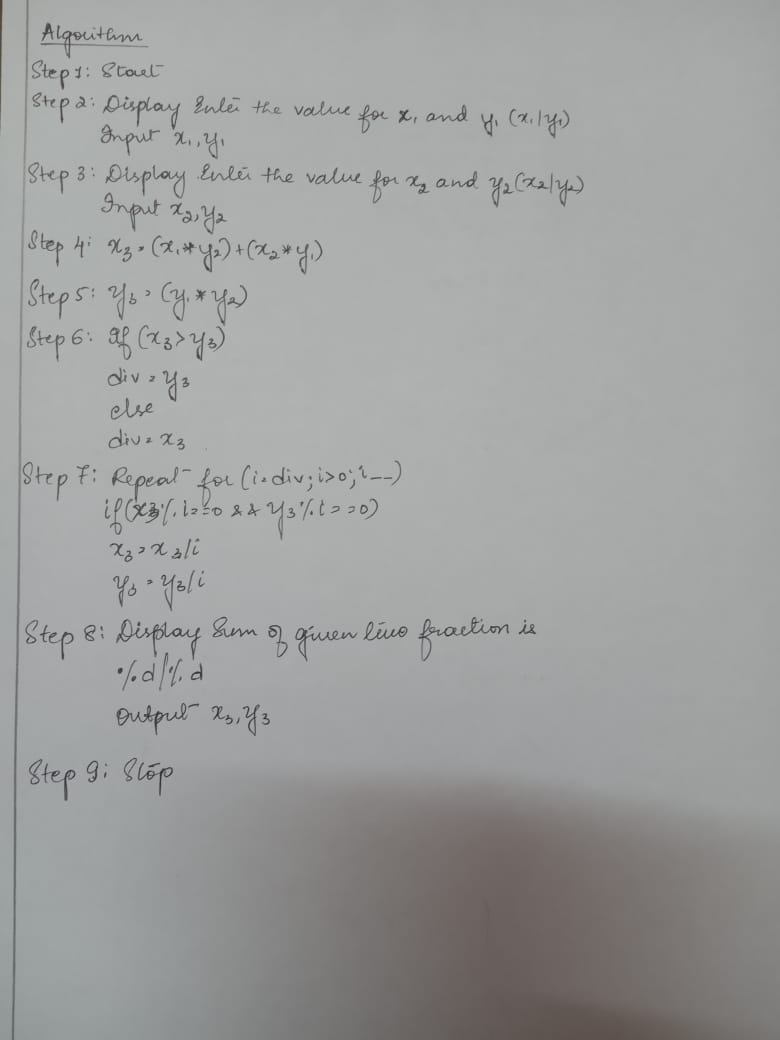 Algorithm
Step 1: Start
Step 2: Display Enter the value for x₁ and y₁ (x₁/y₁)
Input x₁, y₁
Step 3: Display Enter the value for x₂ and y₂ (x₂/y₂)
Input x₂, y₂
Step 4: x₃ = (x₁ * y₂) + (x₂ * y₁)
Step 5: y₃ = (y₁ * y₂)
Step 6: If (x₃ > y₃)
div = y₃
else
div = x₃
Step 7: Repeat for (i = div; i > 0; i --)
if (x₃ % i == 0 && y₃ % i == 0)
x₃ = x₃/i
y₃ = y₃/i
Step 8: Display Sum of given two fraction is
%d/%d
Output x₃, y₃
Step 9: Stop